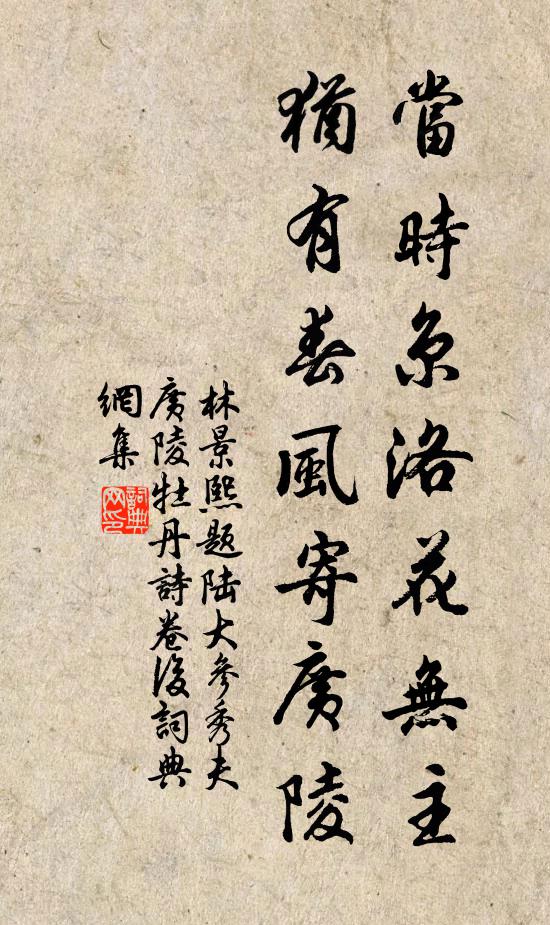 當時京洛花無主
猶有春風寄廣陵
林景熙題陸大參秀夫
廣陵牡丹詩卷後詞典
網集
詞典網印